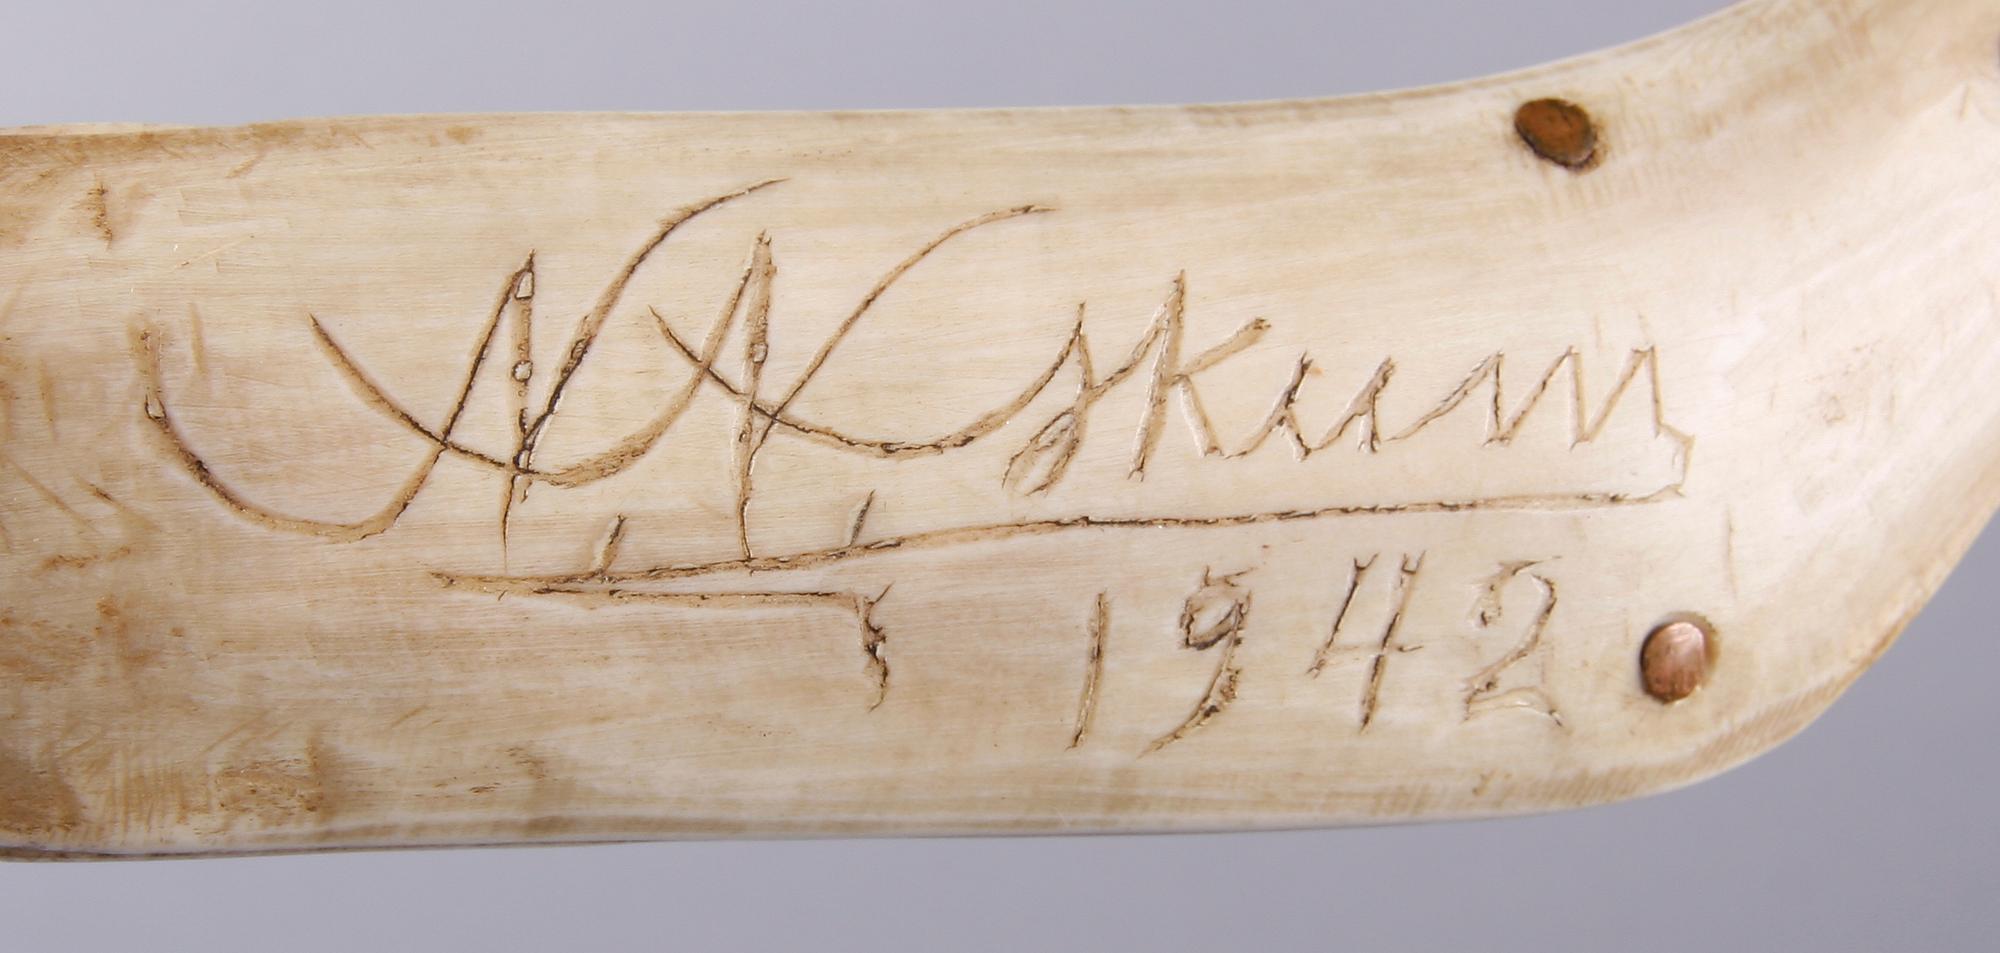 N.N. Skum
1942